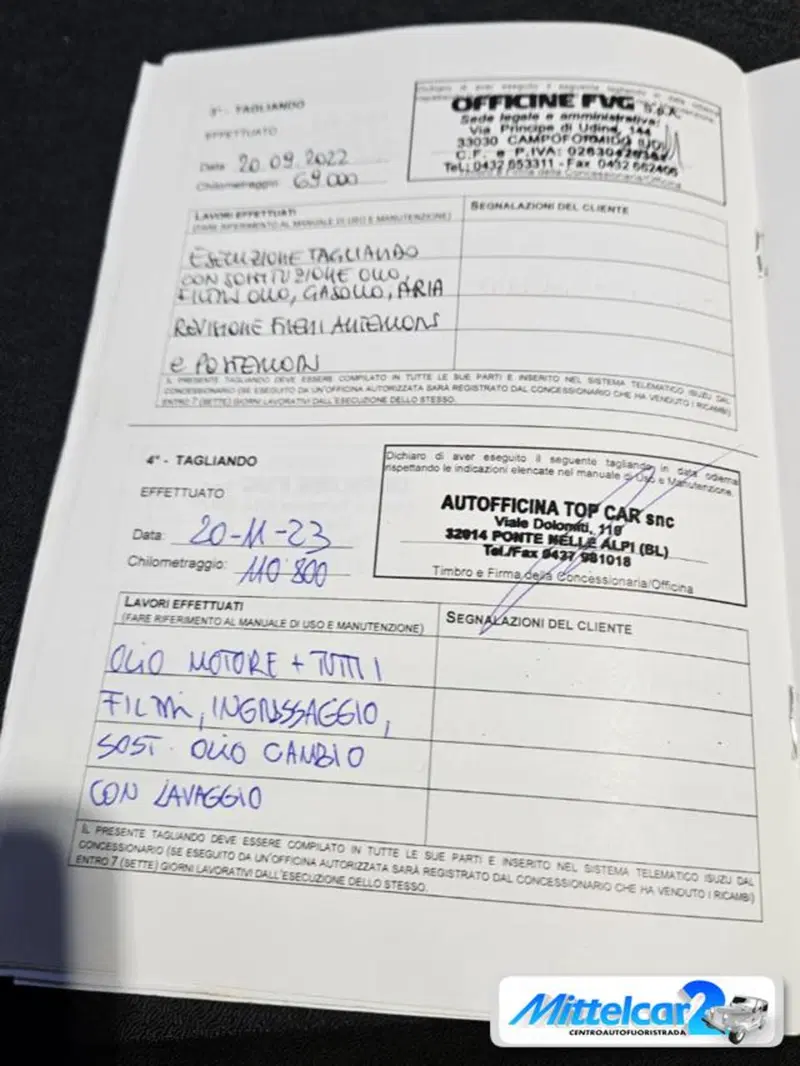 3° - TAGLIANDO
EFFETTUATO
Data 20.09.2022
Chilometraggio 69.000
Dichiaro di aver eseguito il seguente tagliando in data odierna
OFFICINE FVG S.p.A.
Sede legale e amministrativa:
Via Principe di Udine, 144
33030 CAMPOFORMIDO (UD)
C.F. e P.IVA:
Tel.: 0432 653311 - Fax 0432 662406
Timbro e Firma della Concessionaria/Officina
LAVORI EFFETTUATI
(FARE RIFERIMENTO AL MANUALE DI USO E MANUTENZIONE)
SEGNALAZIONI DEL CLIENTE
ESECUZIONE TAGLIANDO
CON SOSTITUZIONE OLIO,
FILTRI OLIO, GASOLIO, ARIA
REVISIONE FRENI ANTERIORI
e POSTERIORI
IL PRESENTE TAGLIANDO DEVE ESSERE COMPILATO IN TUTTE LE SUE PARTI E INSERITO NEL SISTEMA TELEMATICO ISUZU DAL
CONCESSIONARIO (SE ESEGUITO DA UN'OFFICINA AUTORIZZATA SARÀ REGISTRATO DAL CONCESSIONARIO CHE HA VENDUTO I RICAMBI)
ENTRO 7 (SETTE) GIORNI LAVORATIVI DALL'ESECUZIONE DELLO STESSO.
4° - TAGLIANDO
EFFETTUATO
Data: 20-11-23
Chilometraggio: 110 800
Dichiaro di aver eseguito il seguente tagliando in data odierna
rispettando le indicazioni elencate nel manuale di Uso e Manutenzione.
AUTOFFICINA TOP CAR snc
Viale Dolomiti, 119
32014 PONTE NELLE ALPI (BL)
Tel./Fax 0437 981018
Timbro e Firma della Concessionaria/Officina
LAVORI EFFETTUATI
(FARE RIFERIMENTO AL MANUALE DI USO E MANUTENZIONE)
SEGNALAZIONI DEL CLIENTE
OLIO MOTORE + TUTTI
FILTRI, INGRASSAGGIO,
SOST. OLIO CAMBIO
CON LAVAGGIO
IL PRESENTE TAGLIANDO DEVE ESSERE COMPILATO IN TUTTE LE SUE PARTI E INSERITO NEL SISTEMA TELEMATICO ISUZU DAL
CONCESSIONARIO (SE ESEGUITO DA UN'OFFICINA AUTORIZZATA SARÀ REGISTRATO DAL CONCESSIONARIO CHE HA VENDUTO I RICAMBI)
ENTRO 7 (SETTE) GIORNI LAVORATIVI DALL'ESECUZIONE DELLO STESSO.
Mittelcar2
CENTROAUTOFUORISTRADA